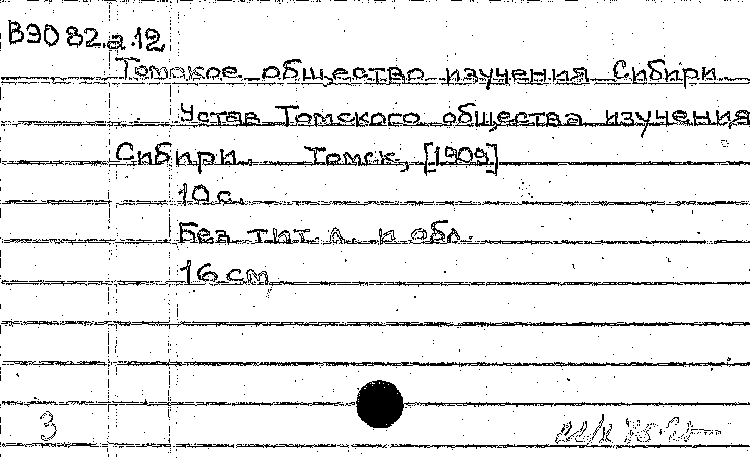 ВЭО 82.а.12
Томское общество изучения Сибири.
Устав Томского общества изучения
Сибири. Томск, [1909]
10 с.
Без тит. л. и обл.
16 см
3